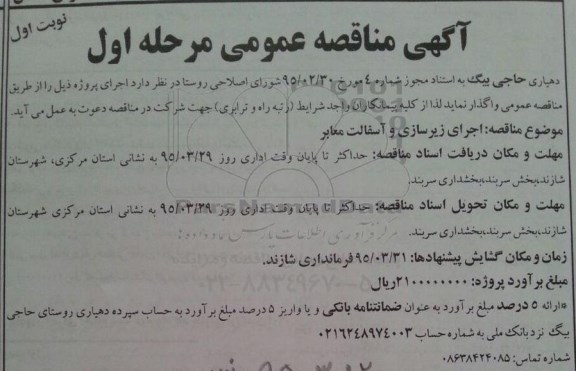 نوبت اول
آگهی مناقصه عمومی مرحله اول
دهیاری حاجی بیگ به استناد مجوز شماره ۴ مورخ ۹۵/۰۲/۳۰ شورای اصلاحی روستا در نظر دارد اجرای پروژه ذیل را از طریق
مناقصه عمومی واگذار نماید لذا از کلیه پیمانکاران واجد شرایط (رتبه راه و ترابری) جهت شرکت در مناقصه دعوت به عمل می آید.
موضوع مناقصه: اجرای زیرسازی و آسفالت معابر
مهلت و مکان دریافت اسناد مناقصه: حداکثر تا پایان وقت اداری روز ۹۵/۰۳/۲۹ به نشانی استان مرکزی، شهرستان
شازند،بخش سربند،بخشداری سربند.
مهلت و مکان تحویل اسناد مناقصه: حداکثر تا پایان وقت اداری روز ۹۵/۰۳/۲۹ به نشانی استان مرکزی شهرستان
شازند،بخش سربند،بخشداری سربند.
زمان و مکان گشایش پیشنهادها: ۹۵/۰۳/۳۱ فرمانداری شازند.
مبلغ برآورد پروژه: ۲۱۰۰۰۰۰۰۰۰ریال
*ارائه ۵ درصد مبلغ برآورد به عنوان ضمانتنامه بانکی و یا واریز ۵ درصد مبلغ برآورد به حساب سپرده دهیاری روستای حاجی
بیگ نزد بانک ملی به شماره حساب ۰۲۱۶۲۴۸۹۷۴۰۰۳
شماره تماس: ۰۸۶۳۸۴۲۴۰۸۵